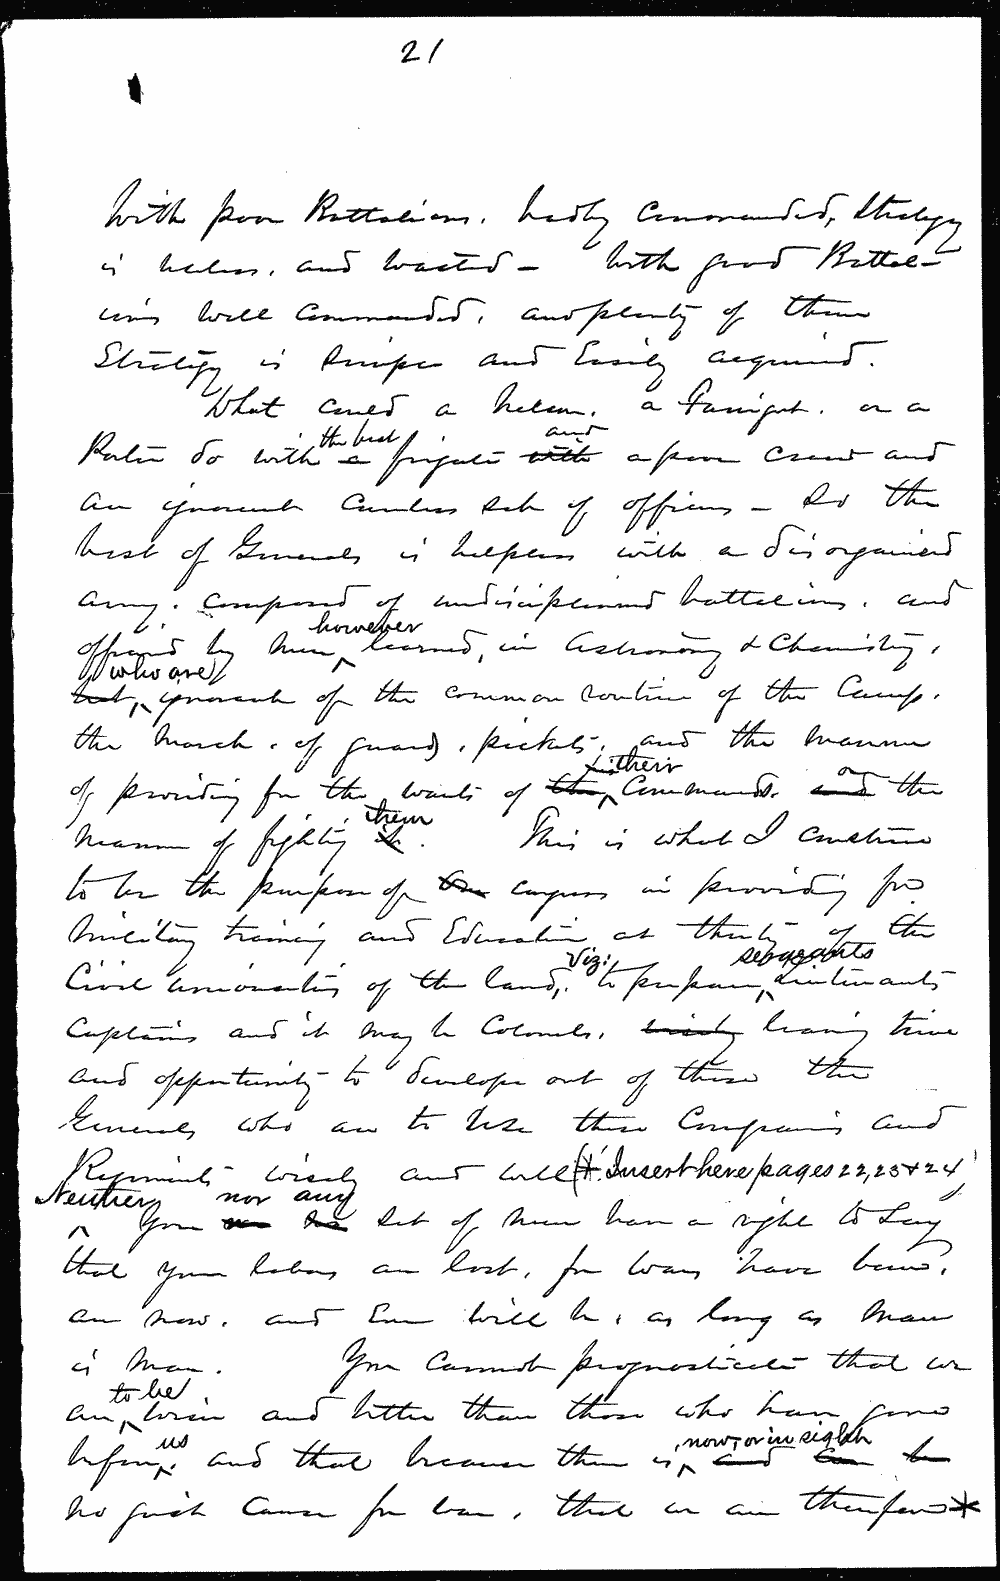 21
With poor Battalions, badly Commanded, Strategy
is useless, and wasted – With good Battal-
ions well Commanded, and plenty of them
Strategy is simple and Easily acquired.
What could a Nelson, a Farragut, or a
the best and
Porter do with a frigate with a poor Crew and
an ignorant Careless set of officers – So the
best of Generals is helpless with a disorganized
army, composed of undisciplined battalions, and
however
officered by Men learned, in Astronomy & Chemistry,
who are
but, ignorant of the common routine of the Camp,
the March, of guards, pickets, and the manner
their
of providing for the wants of the Commands, and the
or
them
manner of fighting it. This is what I construe
to be the purpose of Congress in providing for
Military training and Education at thirty of the
Viz: sergeants
Civil Universities of the land, to prepare, Lieutenants
Captains and it may be Colonels, leaving time
and opportunity to develope out of these the
Generals who are to Use these Companies and
Regiments wisely and well (* Insert here pages 22, 23 & 24)
Neither nor any
You set of men have a right to Say
that your labors are lost, for wars have been,
are now, and Ever will be, as long as Man
is Man. You Cannot prognosticate that we
to be
are wiser and better than those who have gone
us now, or in sight
before, and that because there is, and can be
no just Cause for war, that we are therefore *